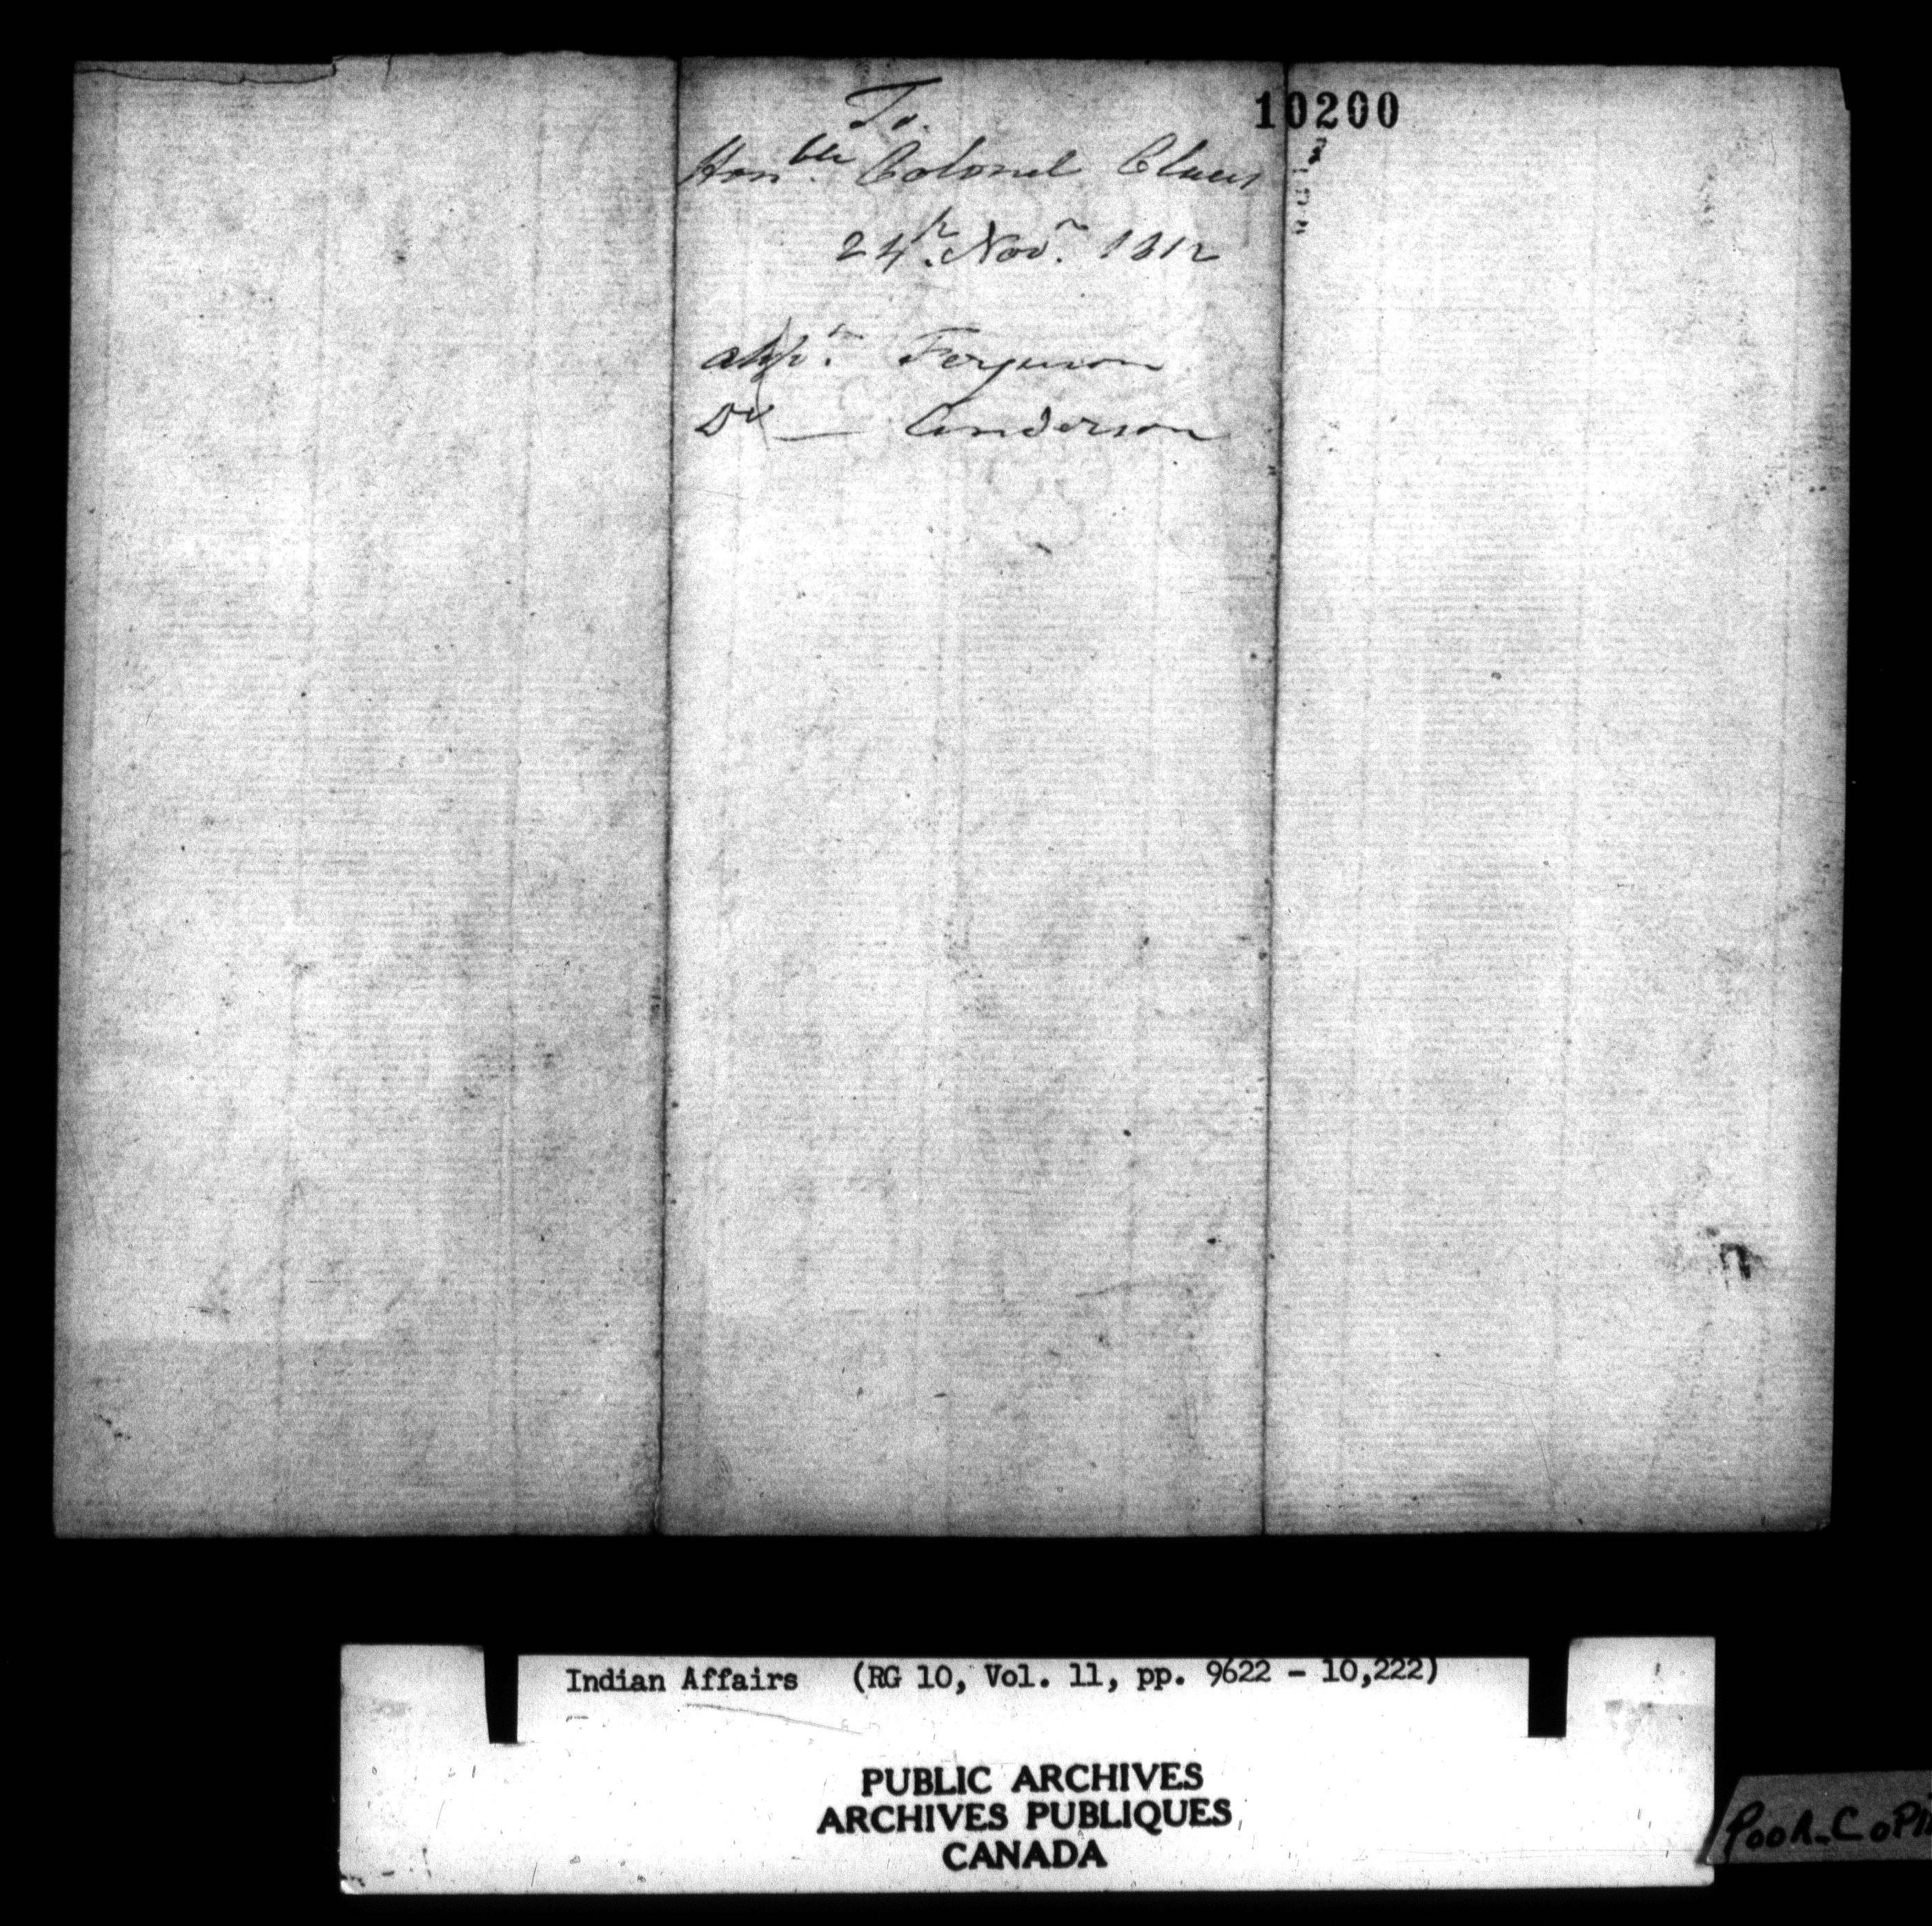 To
10200
Honble Colonel Claus
24th Novr 1812
Ferguson
Do — Anderson
Indian Affairs (RG 10, Vol. 11, pp. 9622 - 10,222)
PUBLIC ARCHIVES
ARCHIVES PUBLIQUES
CANADA
POOR COPI